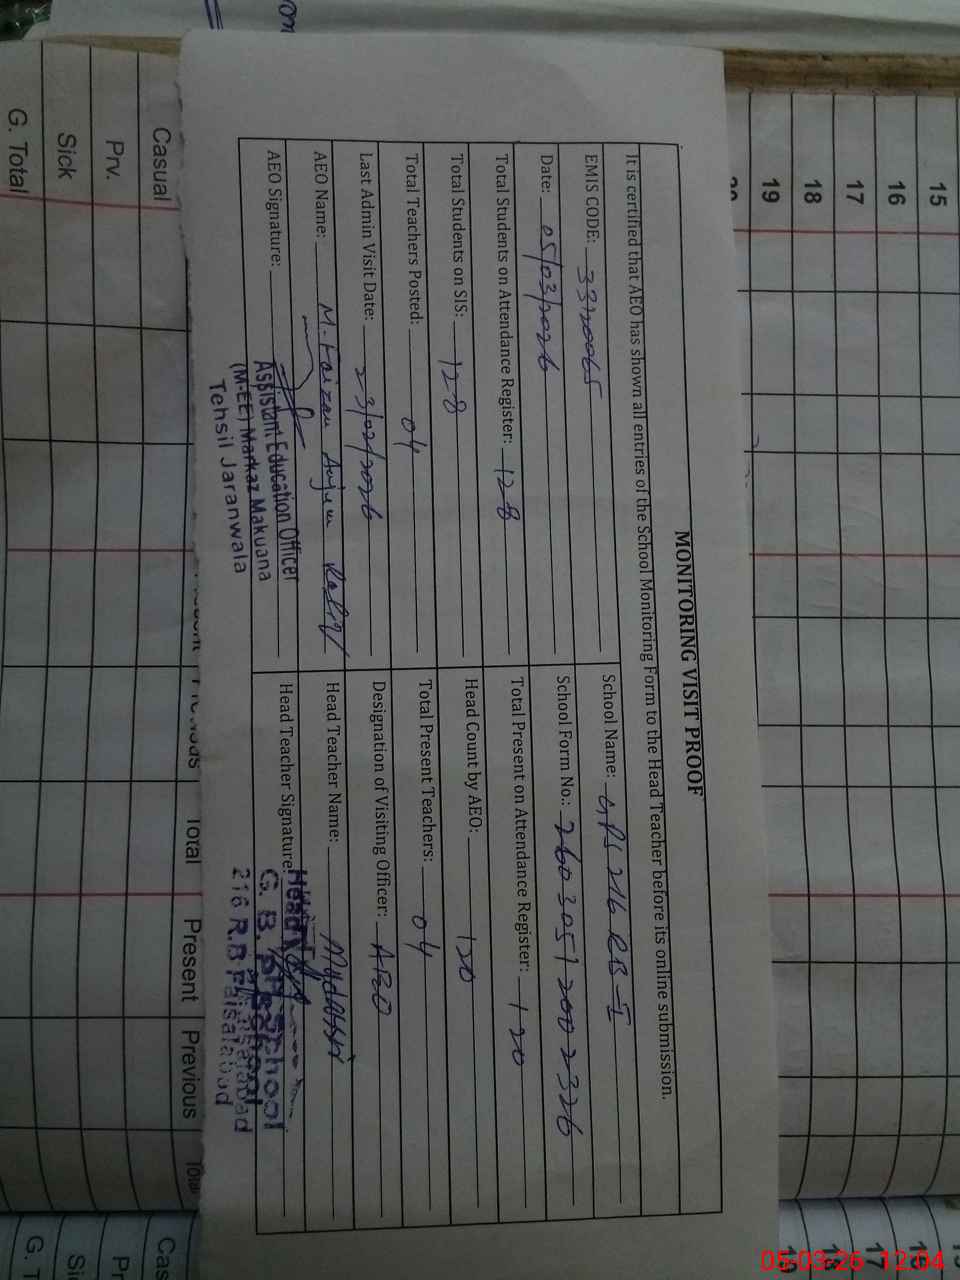 MONITORING VISIT PROOF
It is certified that AEO has shown all entries of the School Monitoring Form to the Head Teacher before its online submission.
EMIS CODE: 33220065 School Name: GPS 216 RB-I
Date: 05/03/2026 School Form No.: 2603051200 2326
Total Students on Attendance Register: 128 Total Present on Attendance Register: 120
Total Students on SIS: 128 Head Count by AEO: 120
Total Teachers Posted: 04 Total Present Teachers: 04
Last Admin Visit Date: 23/02/2026 Designation of Visiting Officer: AEO
AEO Name: M. Faizan Anjum Head Teacher Name:
AEO Signature: Head Teacher Signature:
Assistant Education Officer
(M-EE) Markaz Makuana
Tehsil Jaranwala
Head
G. B. P/School
216 R.B Faisalabad
15
16
17
18
19
20
Casual
Prv.
Sick
G. Total
Total Present Previous Total
Cas
Pr
Si
G. T
16
17
18
19
05-03-26 12:04